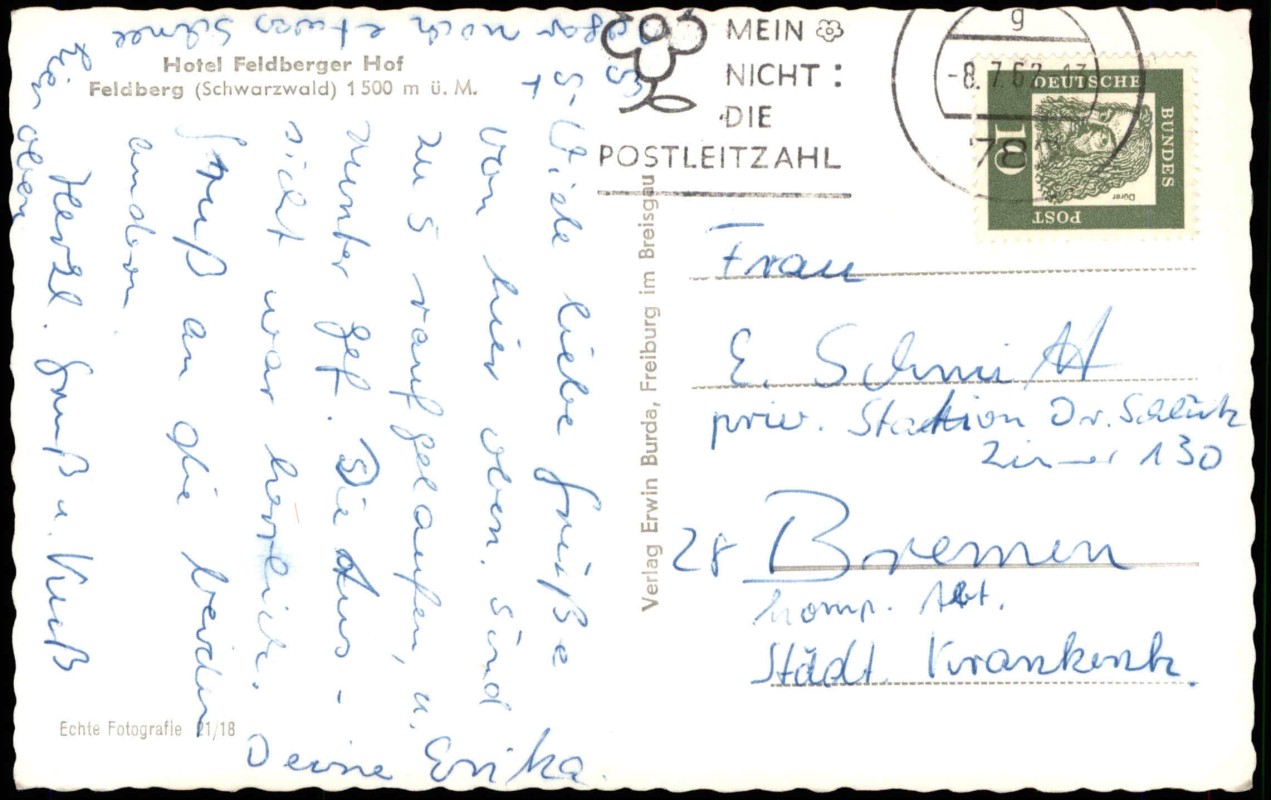 Hotel Feldberger Hof
Feldberg (Schwarzwald) 1500 m ü. M.
Viele liebe Grüße
von hier oben. Sind
zu 5 raufgelaufen, u.
munter gef. Die Aus-
sicht war herrlich.
Gruß an die beiden
andern
Herzl. Gruß u. Kuß
Deine Erika.
Es ist
sogar noch etwas Schnee
hier
oben
Echte Fotografie 21/18
Verlag Erwin Burda, Freiburg im Breisgau
MEIN
NICHT:
DIE
POSTLEITZAHL
g
-8.7.63-13
78
DEUTSCHE
BUNDES
POST
10
Dürer
Frau
E. Schmitt
priv. Station Dr. Schütz
Zimmer 130
28 Bremen
homp. Abt.
Städt. Krankenh.